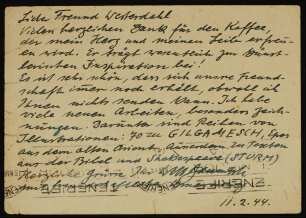 Liebe Freund Westerdahl
Vielen herzlichen Dank für den Kaffee,
der mein Herz und meine Seele erfreu-
en wird. Er trägt wesentlich zur künst-
lerischen Inspiration bei!
Es ist sehr schön, dass sich unsre Freund-
schaft immer noch erhält, obwohl ich
Ihnen nichts senden kann. Ich habe
viele neuen Arbeiten, besonders Zeich-
nungen. Darunter sind Reihen von
Illustrationen: 70 zu GILGAMESCH, Epos
aus dem alten Orient, Ausserdem zu Texten
aus der Bibel und Shakespeare (STURM)
Herzliche Grüsse Ihr
11.2.44.